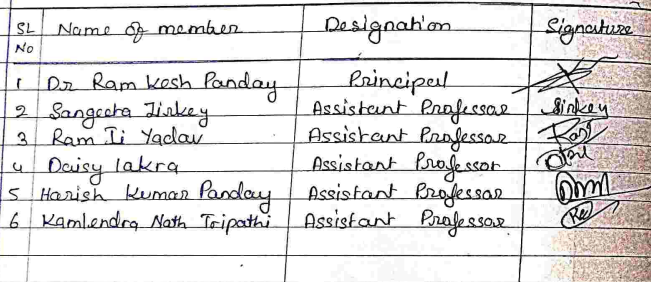 SL No Name of member Designation Signature
1 Dr Ram Kesh Panday Principal
2 Sangeeta Tirkey Assistant Professor Tirkey
3 Ram Ji Yadav Assistant Professor
4 Daisy lakra Assistant Professor
5 Harish Kumar Panday Assistant Professor
6 Kamlendra Nath Tripathi Assistant Professor